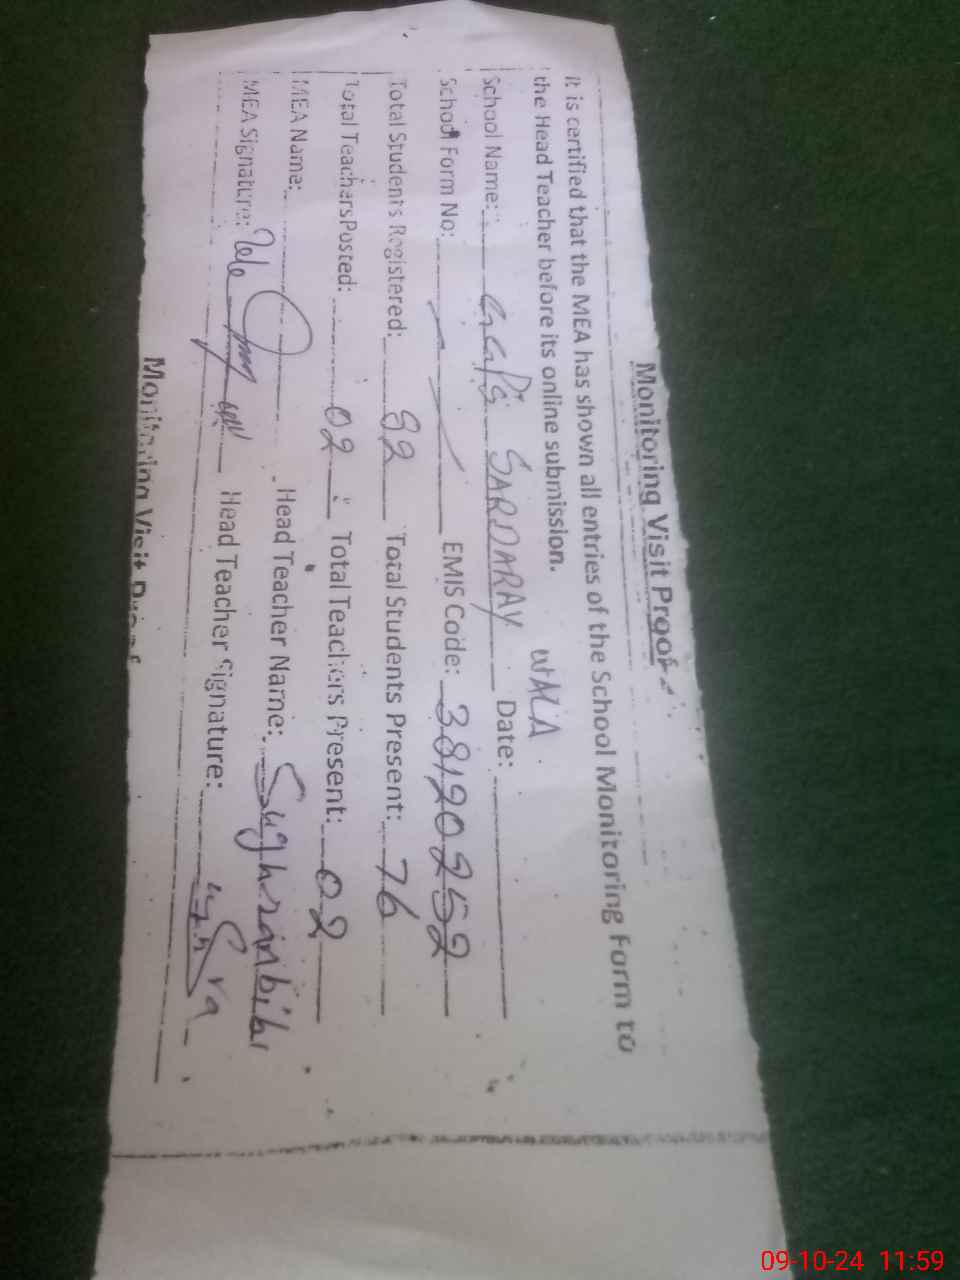 Monitoring Visit Proof
It is certified that the MEA has shown all entries of the School Monitoring Form to
the Head Teacher before its online submission.
School Name: GGPS SARDARAY WALA Date:
School Form No: EMIS Code: 38120252
Total Students Registered: 82 Total Students Present: 76
Total Teachers Posted: 02 Total Teachers Present: 02
MEA Name: Head Teacher Name: Sughranbibi
MEA Signature: Head Teacher Signature:
Monitoring Visit Proof
09-10-24 11:59